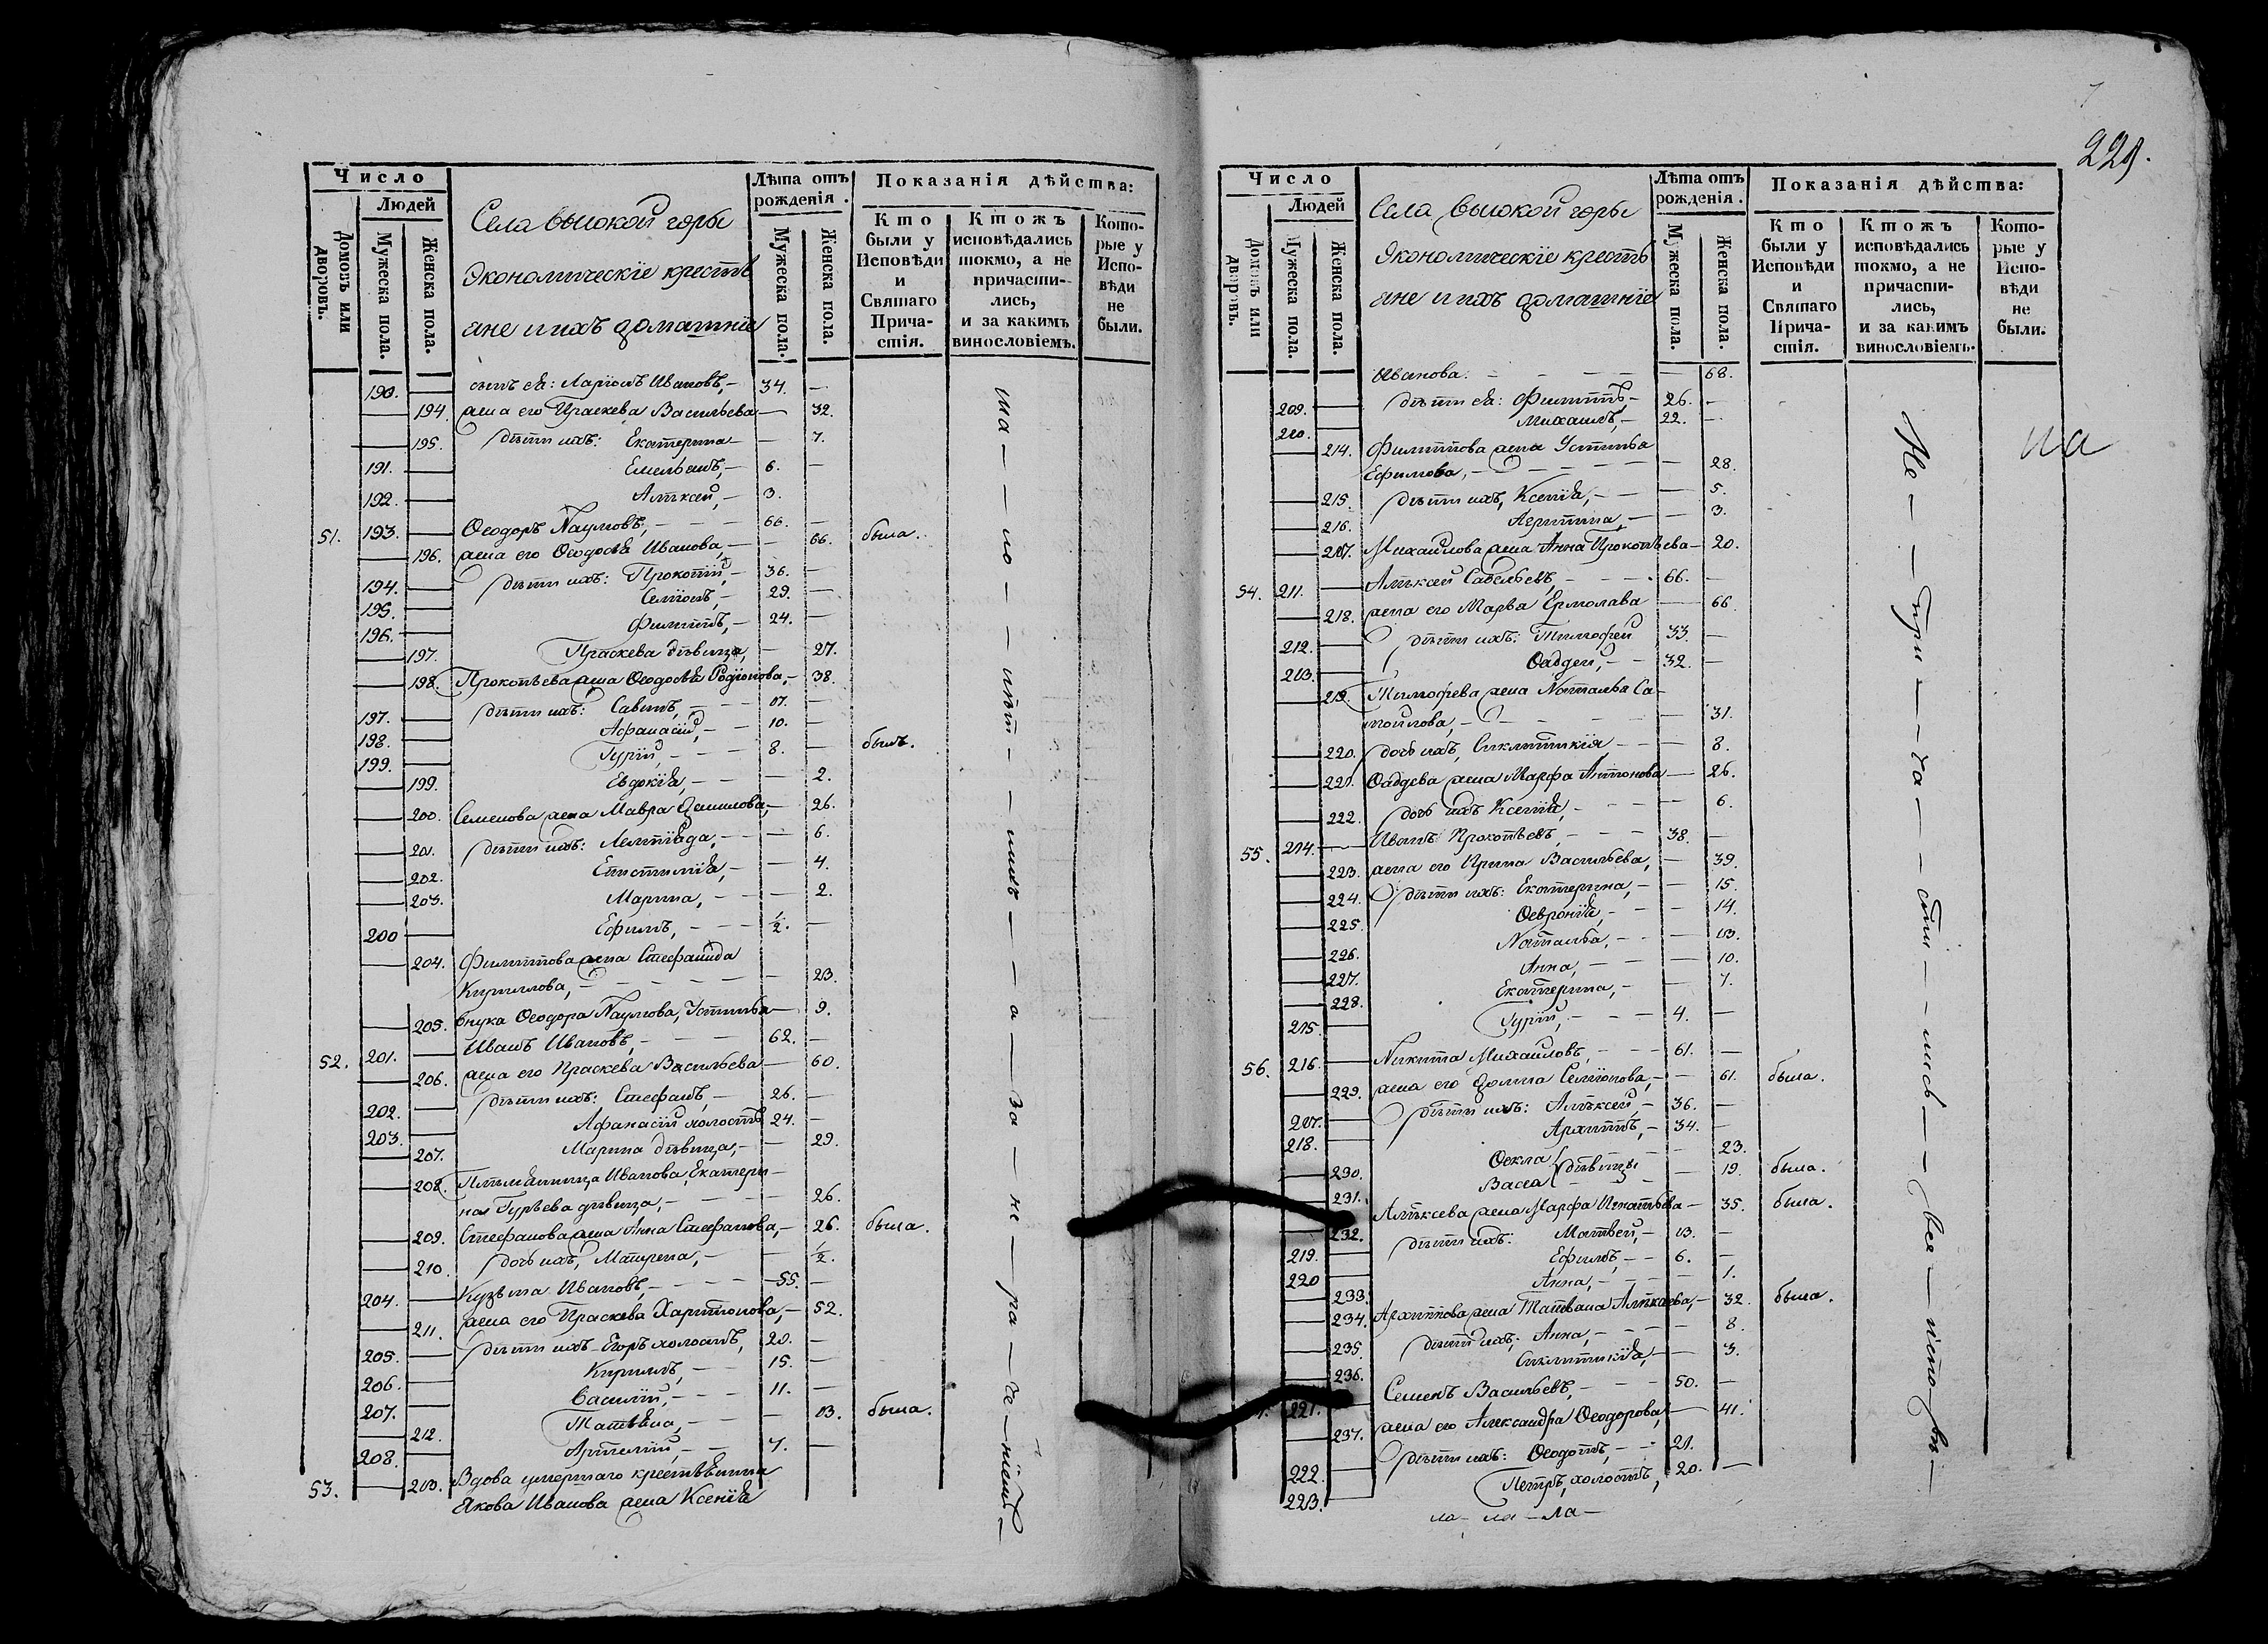 Число
Людей
Домовъ или дворовъ.
Мужеска пола.
Женска пола.
Села высокой горы
Экономическіе кресть
яне и ихъ домашніе
Лѣта отъ рожденія.
Мужеска пола.
Женска пола.
Показанія дѣйства:
Кто были у Исповѣди и Святаго Прича-стія.
Ктожъ исповѣдались токмо, а не причасти-лись, и за какимъ винословіемъ.
Кото-рые у Испо-вѣди не были.
190. сынъ ея: Ларіонъ Ивановъ, 34.
194. жена его Праскева Васильева 32.
195. дѣти ихъ: Екатерина 7.
191. Емельянъ, 6.
192. Алѣксей, 3.
51. 193. Ѳеодоръ Наумовъ, 66. была.
196. жена его Ѳеодосья Иванова, 66.
194. дѣти ихъ: Прокопій, 36.
195. Семіонъ, 29.
196. Филиппъ, 24.
197. Праскева дѣвица, 27.
198. Прокопьева жена Ѳеодосья Родіонова, 38.
197. дѣти ихъ: Савинъ, 17.
198. Афанасій, 10. былъ.
199. Гурій, 8.
199. Евдокія, 2.
200. Семенова жена Мавра Данилова, 26.
201. дѣти ихъ: 6.
202. Епистимія, 4.
203. Марина, 2.
200 Ефимъ, 1/2.
204. Филиппова жена Стефанида
Кирилова, 23.
205. внука Ѳеодора Наумова, Устинья 9.
52. 201. Иванъ Ивановъ, 62.
206. жена его Праскева Васильева 60.
202. дѣти ихъ: Стефанъ, 26.
203. Афанасій холостъ 24.
207. Марина дѣвица, 29.
208. Племянница Иванова, Екатери-
на Гурьева дѣвица, 26.
209. Стефанова жена Анна Стефанова, 26. была.
210. дочь ихъ, Матрена, 1/2.
204. Кузьма Ивановъ, 55.
211. жена его Праскева Харитонова, 52.
205. дѣти ихъ Егоръ холостъ, 20.
206. Кирилъ, 15.
207. Василій, 11.
212. Татьяна, 13. была.
208. Артемій, 7.
53. 213. Вдова умершаго крестьянина
Якова Иванова жена Ксенія
на — по — лѣт — нимъ — а — за — не — ра — че — ніемъ —
229.
Число
Людей
Домовъ или дворовъ.
Мужеска пола.
Женска пола.
Села высокой горы
Экономическіе кресть
яне и ихъ домашніе
Лѣта отъ рожденія.
Мужеска пола.
Женска пола.
Показанія дѣйства:
Кто были у Исповѣди и Святаго Прича-стія.
Ктожъ исповѣдались токмо, а не причасти-лись, и за какимъ винословіемъ.
Кото-рые у Испо-вѣди не были.
Иванова. 68.
209. дѣти ея: Филиппъ, 26.
210. Михаилъ, 22.
214. Филиппова жена Устинья
Ефимова, 28.
215. дѣти ихъ, Ксенія, 5.
216. Агрипина, 3.
217. Михаилова жена Анна Прокопьева 20.
54. 211. Алѣксей Савельевъ, 66.
218. жена его Марѳа Ермолава 66.
212. дѣти ихъ: Тимофей 33.
213. Ѳаддей, 32.
219. Тимофеева жена Наталья Са-
мойлова, 31.
220. дочь ихъ, Сиклитикія 8.
221. Ѳаддева жена Марфа Антонова 26.
222. дочь ихъ Ксенія, 6.
55. 214. Иванъ Прокопьевъ, 38.
223. жена его Ирина Васильева, 39.
224. дѣти ихъ: Екатерина, 15.
225. Ѳевронія, 14.
226. Наталья, 13.
227. Анна, 10.
228. Екатерина, 7.
215. Гурій, 4.
56. 216. Никита Михаиловъ, 61.
229. жена его Домна Семіонова, 61. была.
217. дѣти ихъ: Алѣксей, 36.
218. Архиппъ, 34.
230. Ѳекла 23.
231. Васса дѣвицы 19. была.
232. Алѣксева жена Марфа Игнатьева 35. была.
219. дѣти ихъ: Матвей, 13.
220 Ефимъ, 6.
233. Анна, 1.
234. Архиппова жена Татьяна Алѣксева, 32. была.
235. дѣти ихъ: Анна, 8.
236. Сиклитикія, 3.
221. Семенъ Васильевъ, 50.
237. жена его Александра Ѳеодорова, 41.
222. дѣти ихъ: Ѳеодотъ, 21.
223. Петръ, холостъ, 20.
ла — ла — ла —
Не — при — ча — сти — лись — все — испо — вѣ —
на